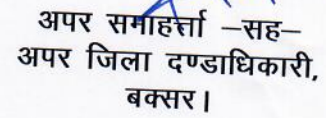 अपर समाहर्त्ता –सह–
अपर जिला दण्डाधिकारी,
बक्सर।